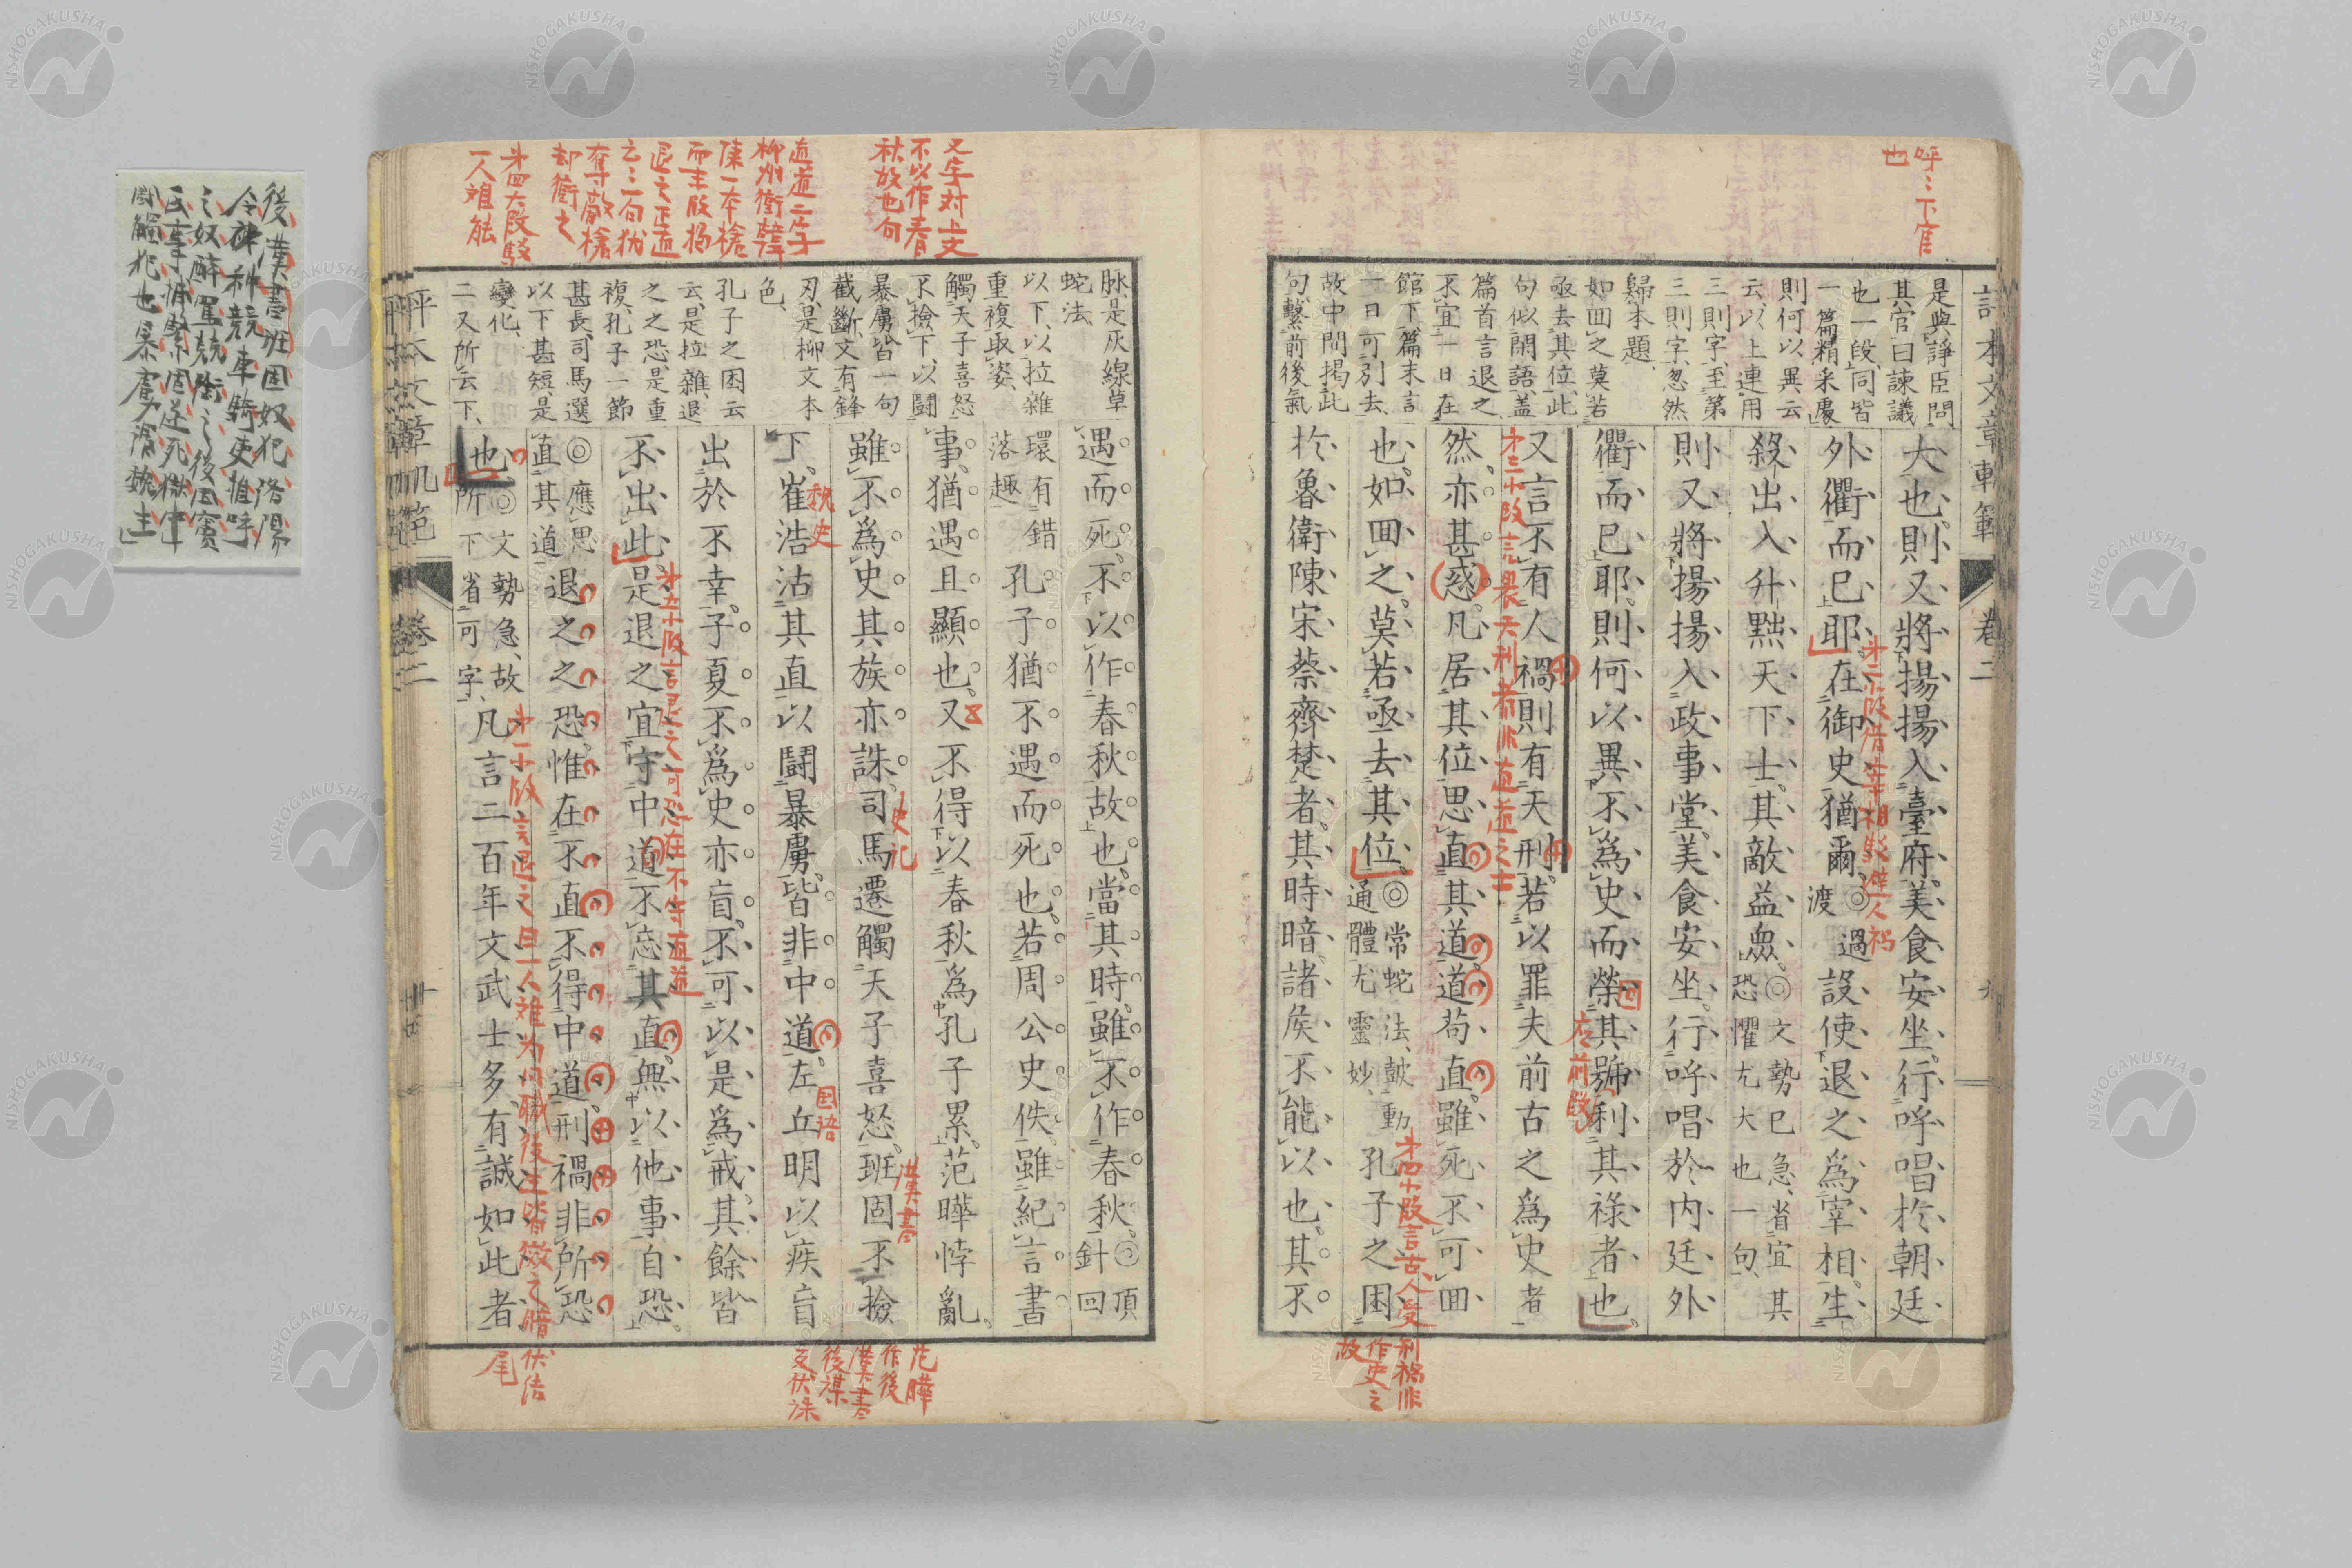 呼〻下官
也
評本文章軌範
卷二
是與諍臣問
其官曰諫議
也一段同皆
一篇精采處
則何以異云
云以上連用
三則字至第
三則字忽然
歸本題
如回之莫若
亟去其位此
句似閑語蓋
篇首言退之
不宜一日在
館下篇末言
一日可別去
故中間揭此
句繫前後氣
大也則又將揚揚入臺府美食安坐行呼唱於朝廷
外衢而已耶在御史猶爾◎過渡設使退之爲宰相生
殺出入升黜天下士其敵益衆◎文勢已急省宜其恐懼尤大也一句
則又將揚揚入政事堂美食安坐行呼唱於内廷外
衢而已耶則何以異不爲史而榮其號利其祿者也
又言不有人禍則有天刑若以罪夫前古之爲史者
然亦甚惑凡居其位思直其道道苟直雖死不可回
也如回之莫若亟去其位◎常蛇法鼓動通體尤靈妙孔子之困
於魯衛陳宋蔡齊楚者其時暗諸矦不能以也其不
才二小段借宰相駁避人禍
應前段
才三小段言畏天刑者非直道之士
才四小段言古人受
刑禍非
作史之
故
又字対上文
不以作春
秋故也句
直道二字
柳州衝撃
陳一本槍
而主段揭
退之正道
云〻二句犹
奪敵槍
却衝之
才四大段駁
一人难能
脉是灰線草
蛇法
以下以拉雜
重複取姿
觸天子喜怒
不撿下以鬪
暴虜皆一句
截斷文有鋒
刃是柳文本
色
孔子之困云
云是拉雜退
之之恐是重
複孔子一節
甚長司馬遷
以下甚短是
變化
二又所云下
遇而死不以作春秋故也當其時雖不作春秋◎針頂回
環有錯落趣孔子猶不遇而死也若周公史佚雖紀言書
事猶遇且顯也又不得以春秋爲孔子累范曄悖亂
雖不爲史其族亦誅司馬遷觸天子喜怒班固不撿
下崔浩沽其直以鬪暴虜皆非中道左丘明以疾盲
出於不幸子夏不爲史亦盲不可以是爲戒其餘皆
不出此是退之宜守中道不忘其直無以他事自恐
◎應思直其道退之之恐惟在不直不得中道刑禍非所恐
也◎文勢急故所下省可字凡言二百年文武士多有誠如此者
史記
漢書
魏史
国语
才五小段言退之可恐在不守直道
才一小段言退之曰一人难为行職後生皆效之惰
伏结
尾
范曄
作後
漢書
後謀
反伏誅
評本文章軌範
卷二
後漢書班固奴犯洛陽
令神种競車騎吏惟呼
之奴醉罵競銜之後因竇
氏事捕繫固遂死獄中
鬪觸犯也暴虜謂魏主
NISHOGAKUSHA